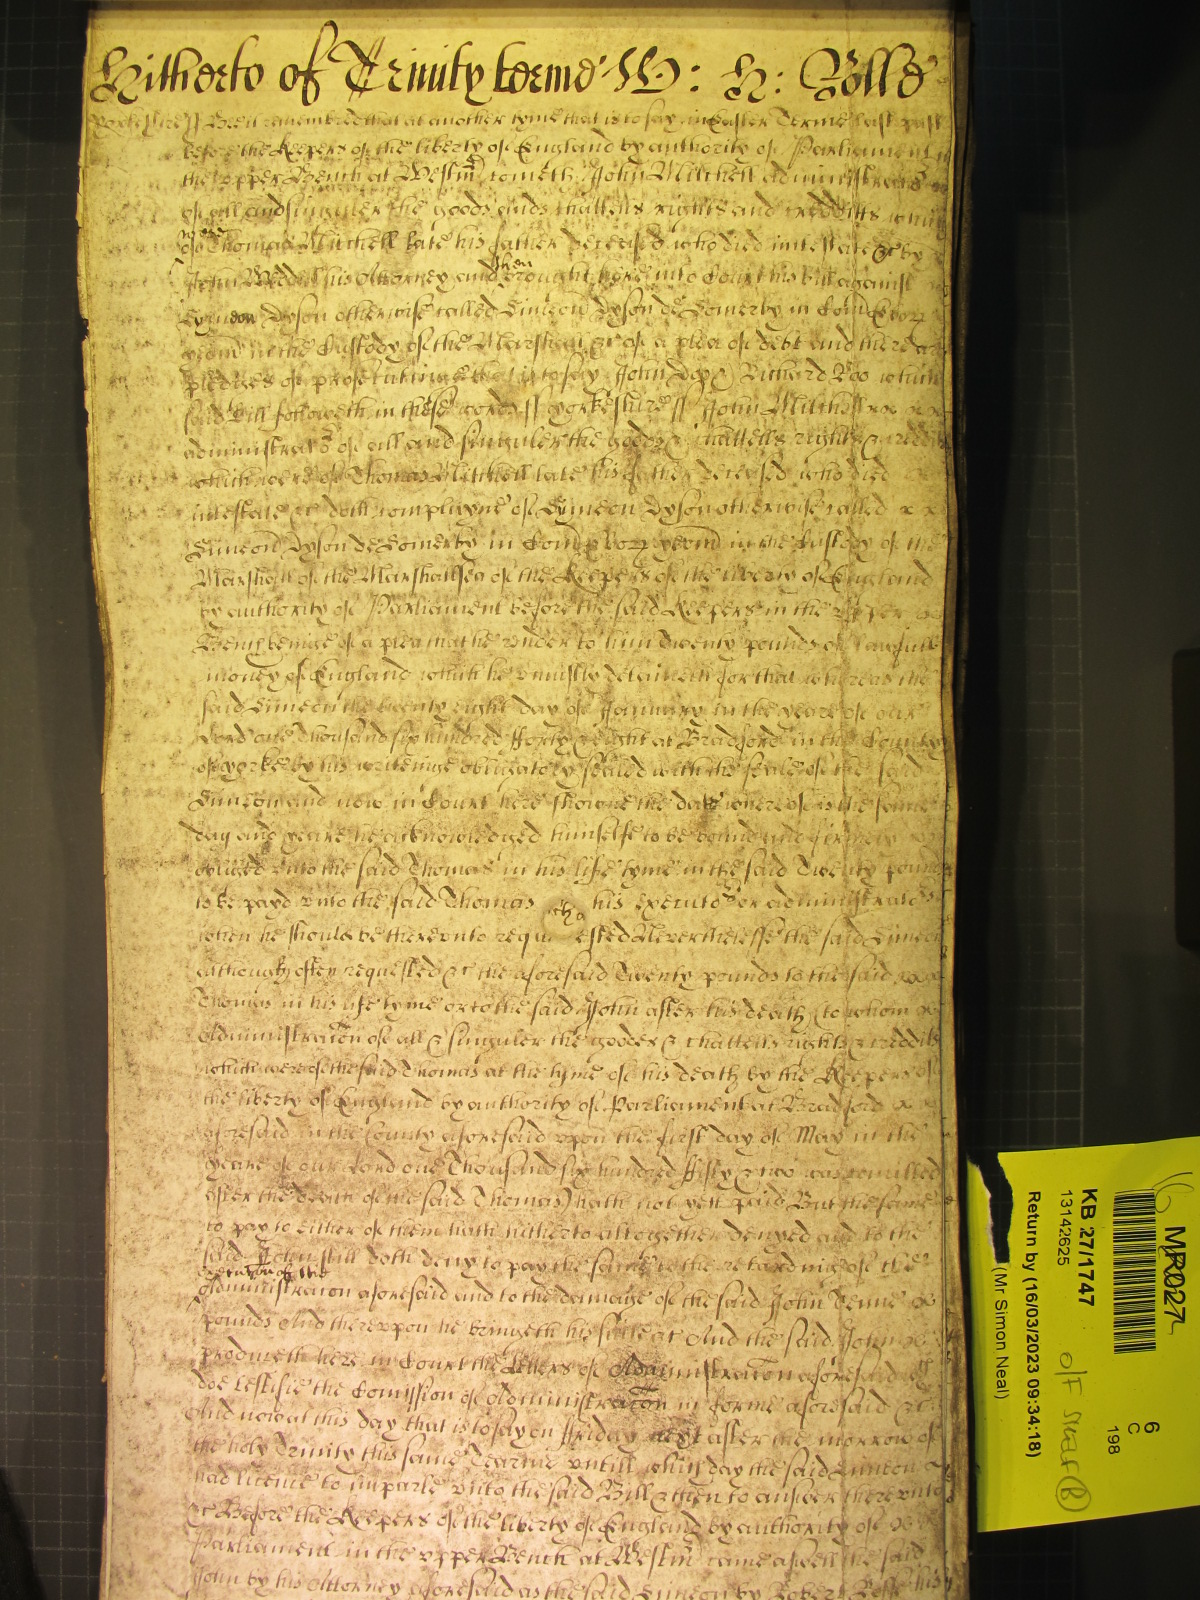 Hitherto of Trinity terme W: H: Rolle
Yorkeshire ss Bee it remembred that at another tyme that is to say in Easter Terme last past
before the Keepers of the liberty of England by authority of Parliament in
the vpper Bench at Westm cometh John Mitchell administrator
of all and singuler the goods and chattells rights and creditts which
were
of Thomas Mitchell late his father deceased who died intestate &c by
John his Attorney and then brought here into Court his bill against
Symeon Dyson otherwise called Simeon Dyson de Sowerby in Com Ebor
yeom in the Custody of the Marshall &c of a plea of debt and there are
pledges of prosecutinge that is to say John Doe & Richard Roo which
said Bill followeth in these words ss Yorkeshire ss John Mitchell
administrator of all and singuler the goods & chattells rights & creditts
which were of Thomas Mitchell late his father deceased who died
intestate &c doth complayne of Symeon Dyson otherwise called
Simeon Dyson de Sowerby in Com Ebor yeom in the Custody of the
Marshall of the Marshallsea of the Keepers of the liberty of England
by authority of Parliament before the said Keepers in the vpper
Bench beinge of a plea that he render to him Twenty pounds of lawfull
money of England which he vniustly deteineth for that whereas the
said Simeon the twenty eight day of January in the yeare of our
Lord one thousand six hundred fforty & eight at Bradford in the County
of Yorke by his writeinge obligatory seald with the seale of the said
Simeon and now in Court here showne the date whereof is the same
day and yeare he acknowledged himselfe to be bound and firmely
obliged vnto the said Thomas in his life tyme in the said Twenty pounds
to be payd vnto the said Thomas his executors or administrators
when he should be therevnto requ ested Neverthelesse the said Simeon
although often requested &c the aforesaid Twenty pounds to the said
Thomas in his life tyme or to the said John after his death (to whom
Administracon of all & singuler the goodes & chattells rights & creditts
which were of the said Thomas at the tyme of his death by the Keepers of
the liberty of England by authority of Parliament at Bradford
aforesaid in the County aforesaid vpon the first day of May in the
yeare of our Lord one Thousand six hundred ffifty & two was comitted
after the death of the said Thomas) hath not yett paid But the same
to pay to either of them hath hitherto altogether denyed and to the
said John still doth deny to pay the same to the retardinge of the
execution of the
Administracon aforesaid and to the damage of the said John Tenne
pounds And therevpon he bringeth his suite &c And the said John
produceth here in Court the letters of Administracon aforesaid
doe testifie the Comission of Administracon in forme aforesaid &c
And now at this day that is to say on ffriday next after the morrow of
the holy Trinity this same Tearme vntill which day the said Simeon
had licence to imparle vnto the said Bill & then to answer therevnto
&c Before the Keepers of the liberty of England by authority of
Parliament in the vpper Bench at Westm came aswell the said
John by his Attorney aforesaid as the said Simeon by Robert his
MR027
KB 27/1747
13142625
Return by (16/03/2023 09:34:18)
(Mr Simon Neal)
6
C
198